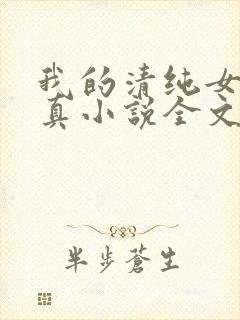 我的清纯女
真小说全文
半步蒼生